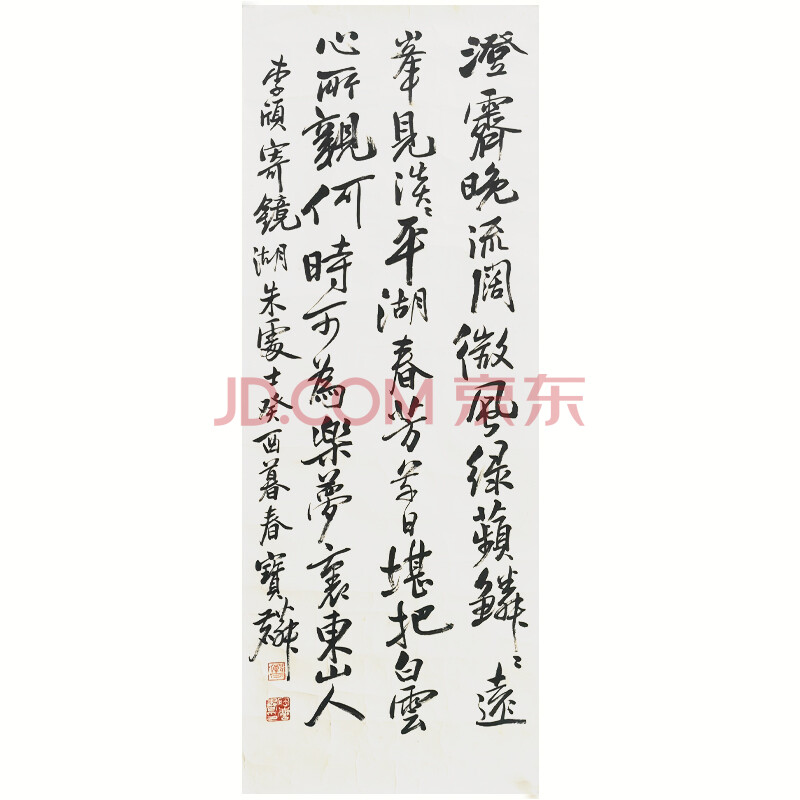 澄霽晚流闊微風綠蘋鱗〻遠
峯見淡〻平湖春芳草日堪把白雲
心所親何時可為樂夢裏東山人
李頎寄鏡湖朱處士癸酉暮春寶
JD.COM 京东